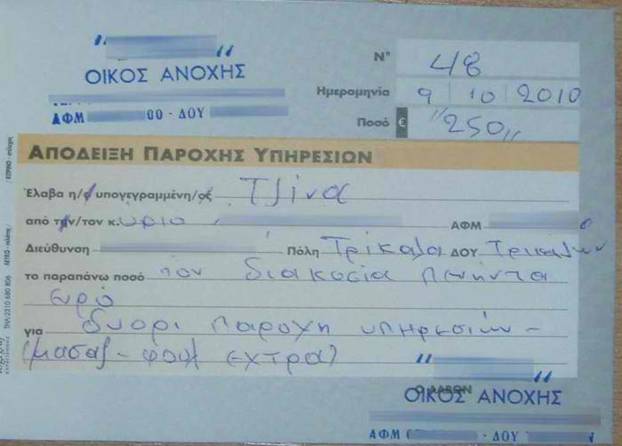 ΟΙΚΟΣ ΑΝΟΧΗΣ
ΑΦΜ 00 - ΔΟΥ
Ν° 48
Ημερομηνία 9 10 2010
Ποσό € "250"
ΑΠΟΔΕΙΞΗ ΠΑΡΟΧΗΣ ΥΠΗΡΕΣΙΩΝ
Έλαβα η/ο υπογεγραμμένη/ος Τζίνα
από την/τον κ.ύριο ΑΦΜ 0
Διεύθυνση Πόλη Τρίκαλα ΔΟΥ Τρικάλων
το παραπάνω ποσό των διακόσια πενήντα
ευρό
για δυορι παροχη υπηρεσιών -
(μασαζ - φουλ εχτρα)
Ο ΛΑΒΩΝ
ΟΙΚΟΣ ΑΝΟΧΗΣ
ΑΦΜ - ΔΟΥ